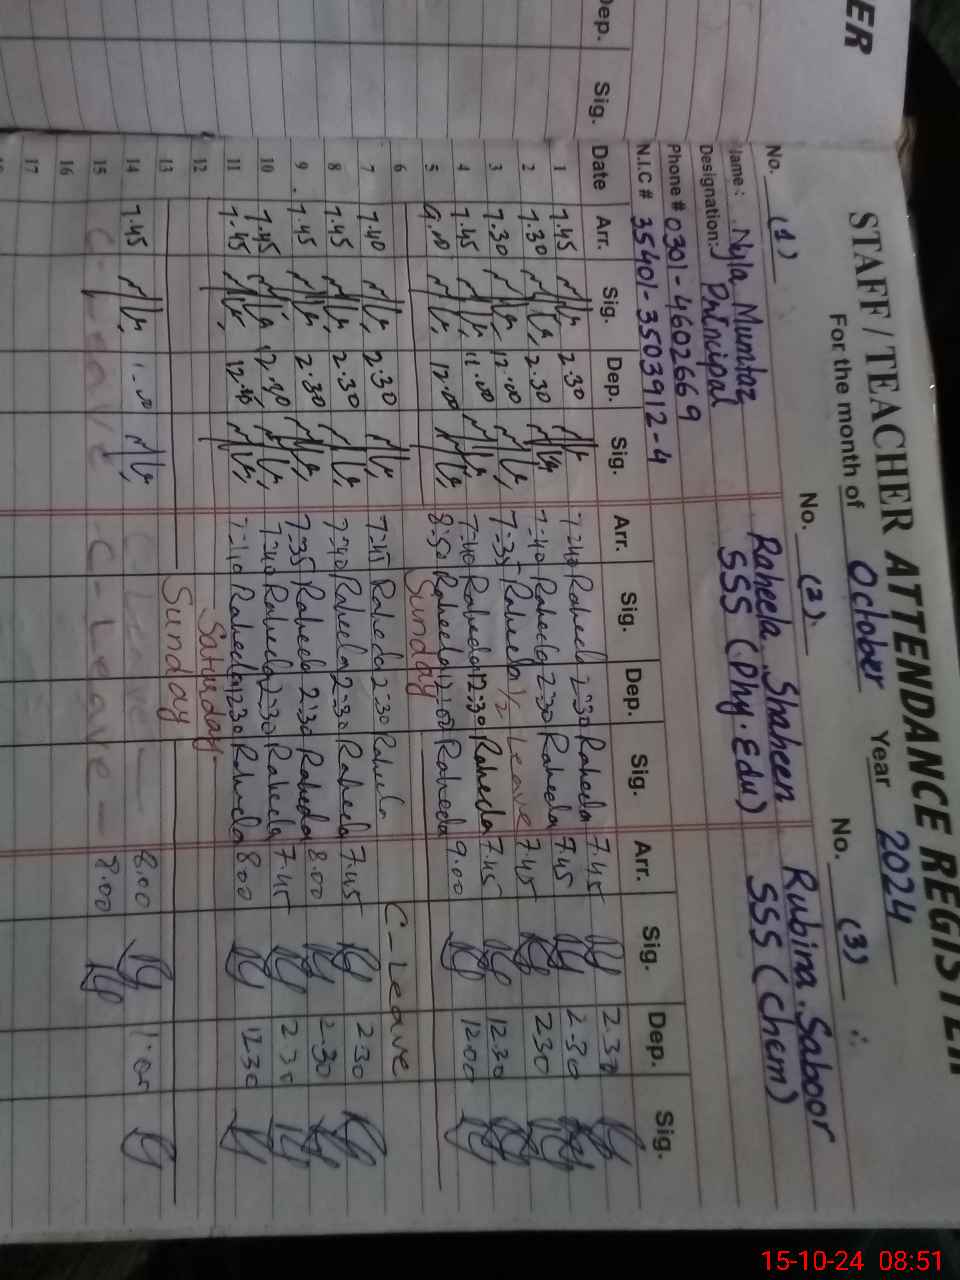 ER
Dep. Sig.
STAFF / TEACHER ATTENDANCE REGISTER
For the month of October Year 2024
No. (1) No. (2). No. (3)
Name: Nyla Mumtaz Raheela Shaheen Rubina Saboor
Designation: Principal SSS (Phy. Edu) SSS (Chem)
Phone # 0301-4602669
N.I.C # 35401-3503912-4
Date Arr. Sig. Dep. Sig. Arr. Sig. Dep. Sig. Arr. Sig. Dep. Sig.
1 7.45 2.30 7:40 Raheela 2:30 Raheela 7.45 2.30
2 7.30 2.30 7:40 Raheela 2:30 Raheela 7.45 2.30
3 7.30 12.00 7:35 Raheela 1/2 Leave 7.45 2.30
4 7.45 11.00 7:40 Raheela 12:30 Raheela 7.45 12.30
5 9.00 12.00 8:50 Raheela 12:00 Raheela 9.00 12.00
6 Sunday
7 7.40 2.30 7:45 Raheela 2:30 Raheela C-Leave
8 7.45 2.30 7:40 Raheela 2:30 Raheela 7.45 2.30
9 7.45 2.30 7:35 Raheela 2:30 Raheela 8.00 2.30
10 7.45 7:40 Raheela 2:30 Raheela 7.45 2.30
11 7.45 7:40 Raheela 12:30 Raheela 8.00 12.30
12 Saturday
13 Sunday
14 7.45 1.00 C-Leave 8.00 1.00
15 C-Leave C-Leave 8.00
16
17
15-10-24 08:51